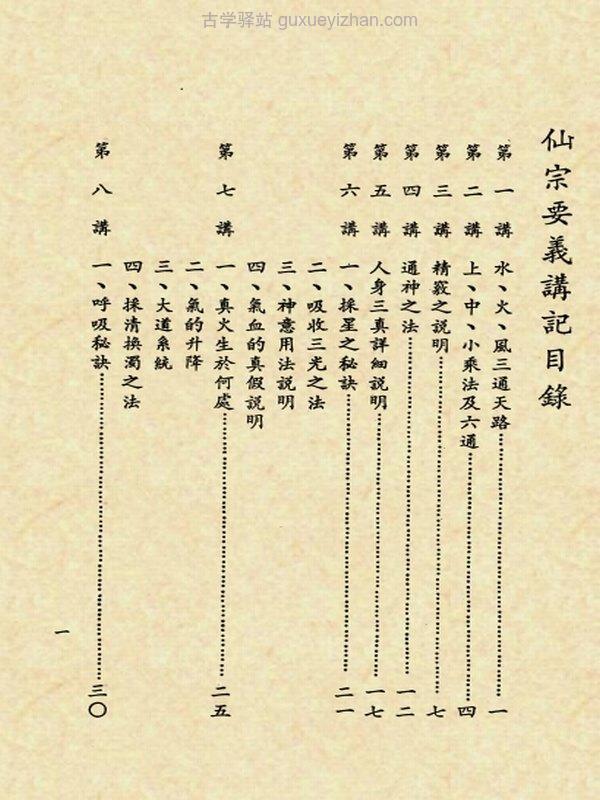 古学驿站 guxueyizhan.com
仙宗要義講記目錄
第一講 水、火、風三通天路……一
第二講 上、中、小乘法及六通……四
第三講 精竅之說明……七
第四講 通神之法……一二
第五講 人身三真詳細說明……一七
第六講 一、採星之秘訣……二一
二、吸收三光之法
三、神意用法說明
四、氣血的真假說明
第七講 一、真火生於何處……二五
二、氣的升降
三、大道系統
四、採清換濁之法
第八講 一、呼吸秘訣……三〇
一